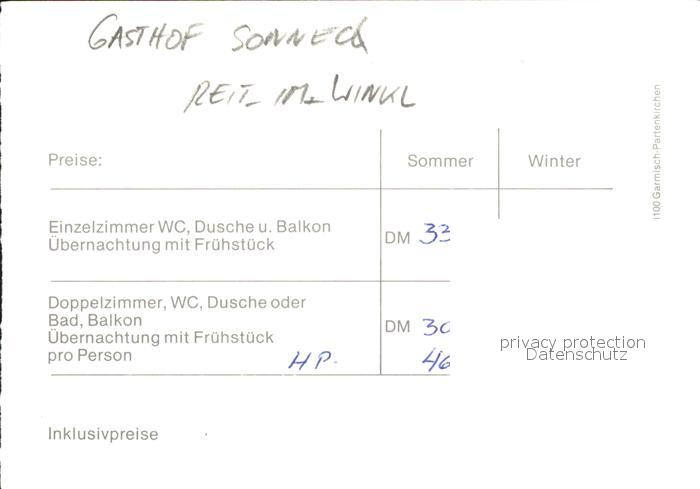 GASTHOF SONNECK
REIT- IM- WINKL
Preise:
Sommer
Winter
Einzelzimmer WC, Dusche u. Balkon
Übernachtung mit Frühstück
DM 33
Doppelzimmer, WC, Dusche oder
Bad, Balkon
Übernachtung mit Frühstück
DM 30
pro Person
HP. 46
Inklusivpreise
privacy protection
Datenschutz
i100 Garmisch-Partenkirchen